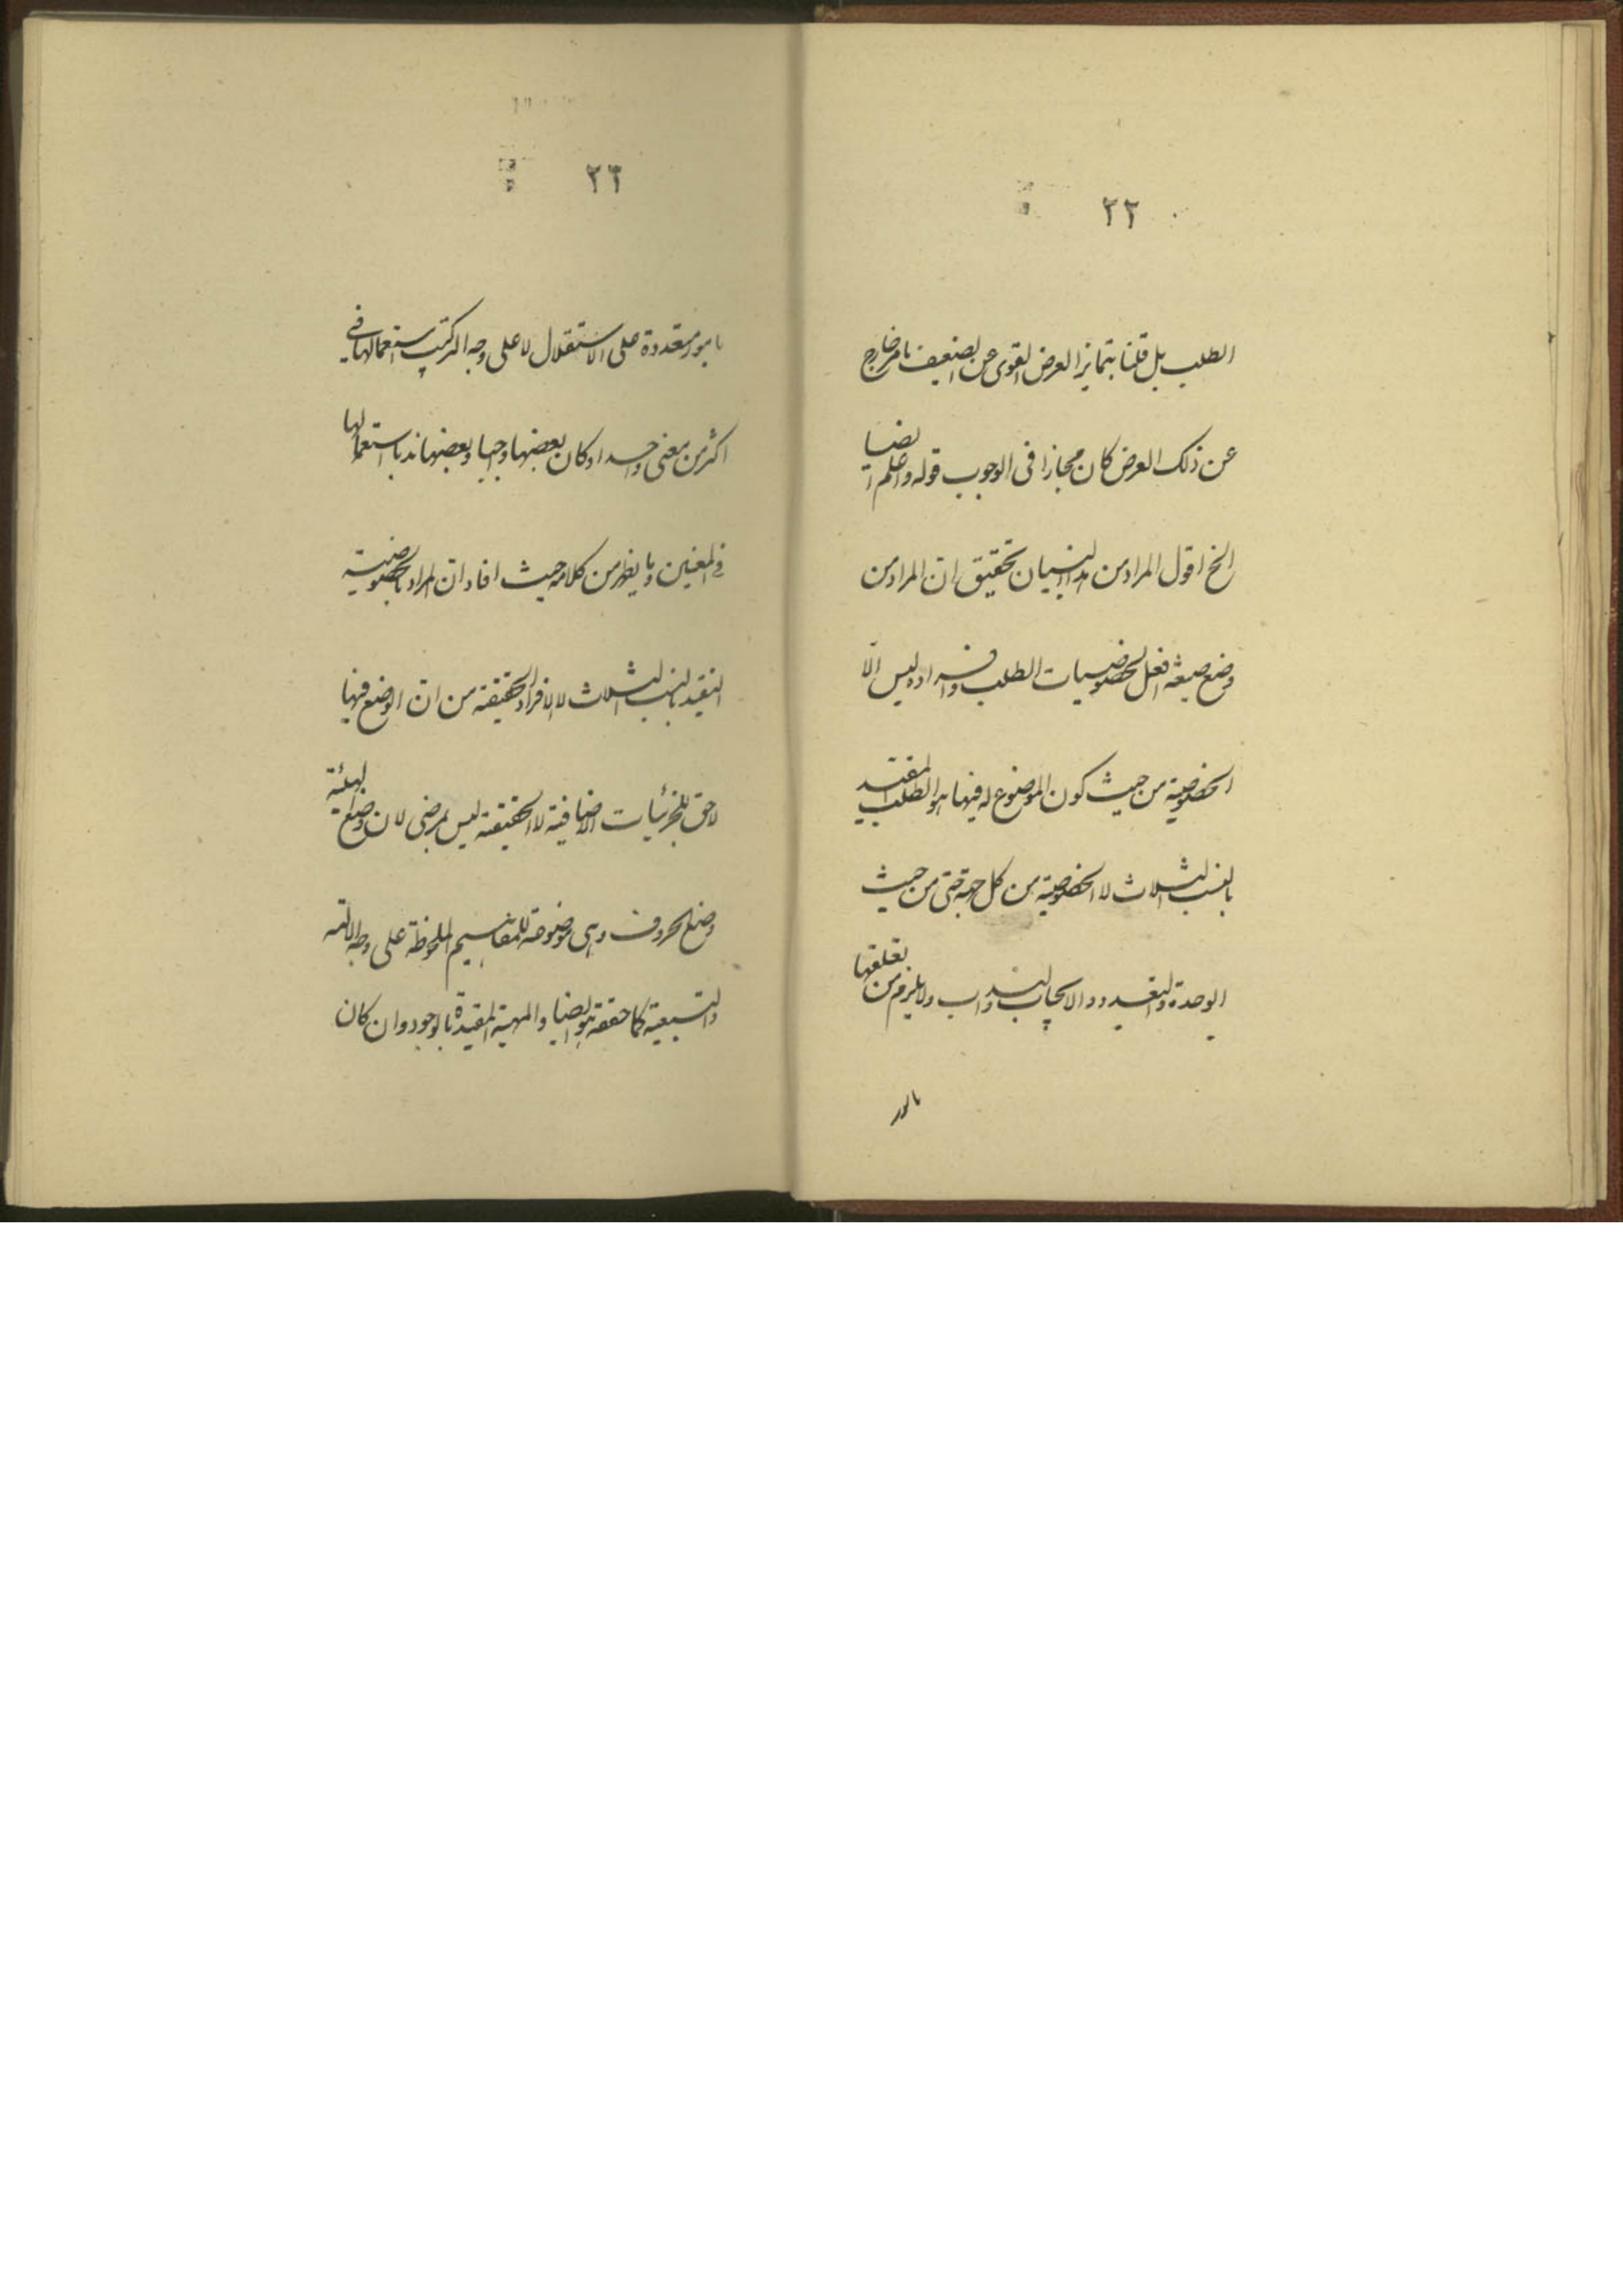 ٢٢
الطلب بل قلنا بتمايز العرض القوى عن الضعيف بامر خارج
عن ذلك العرض كان مجازا فى الوجوب قوله واعلم ايضا
الخ اقول المراد من هذا البيان تحقيق ان المراد من
وضع صيغة افعل لخصوصيات الطلب وافراده ليس الّا
الخصوصية من حيث كون الموضوع له فيها هو الطلب المقيد
بالنسب الثلاث لا الخصوصية من كل جهة حتى من حيث
الوحدة والتعدد والايجاب والندب ولا يلزم من تعلقها
بامور
٢٣
بامور متعددة على الاستقلال لا على وجه التركيب استعمالها فى
اكثر من معنى واحد اذ كان بعضها واجبا وبعضها ندبا استعمالها
فى المعنيين وما يظهر من كلامه حيث افاد ان المراد بالخصوصية
التقيد بالنسب الثلاث لا الافراد الحقيقية من ان الوضع فيها
لاحق للجزئيات الاضافية لا الحقيقية ليس بمرضى لان وضع الهيئة
وضع الحروف وهى موضوعة للمفاهيم الملحوظة على وجه الآلية
والتبعية كما حققه هو ايضا والمهية المقيدة بالوجود وان كان